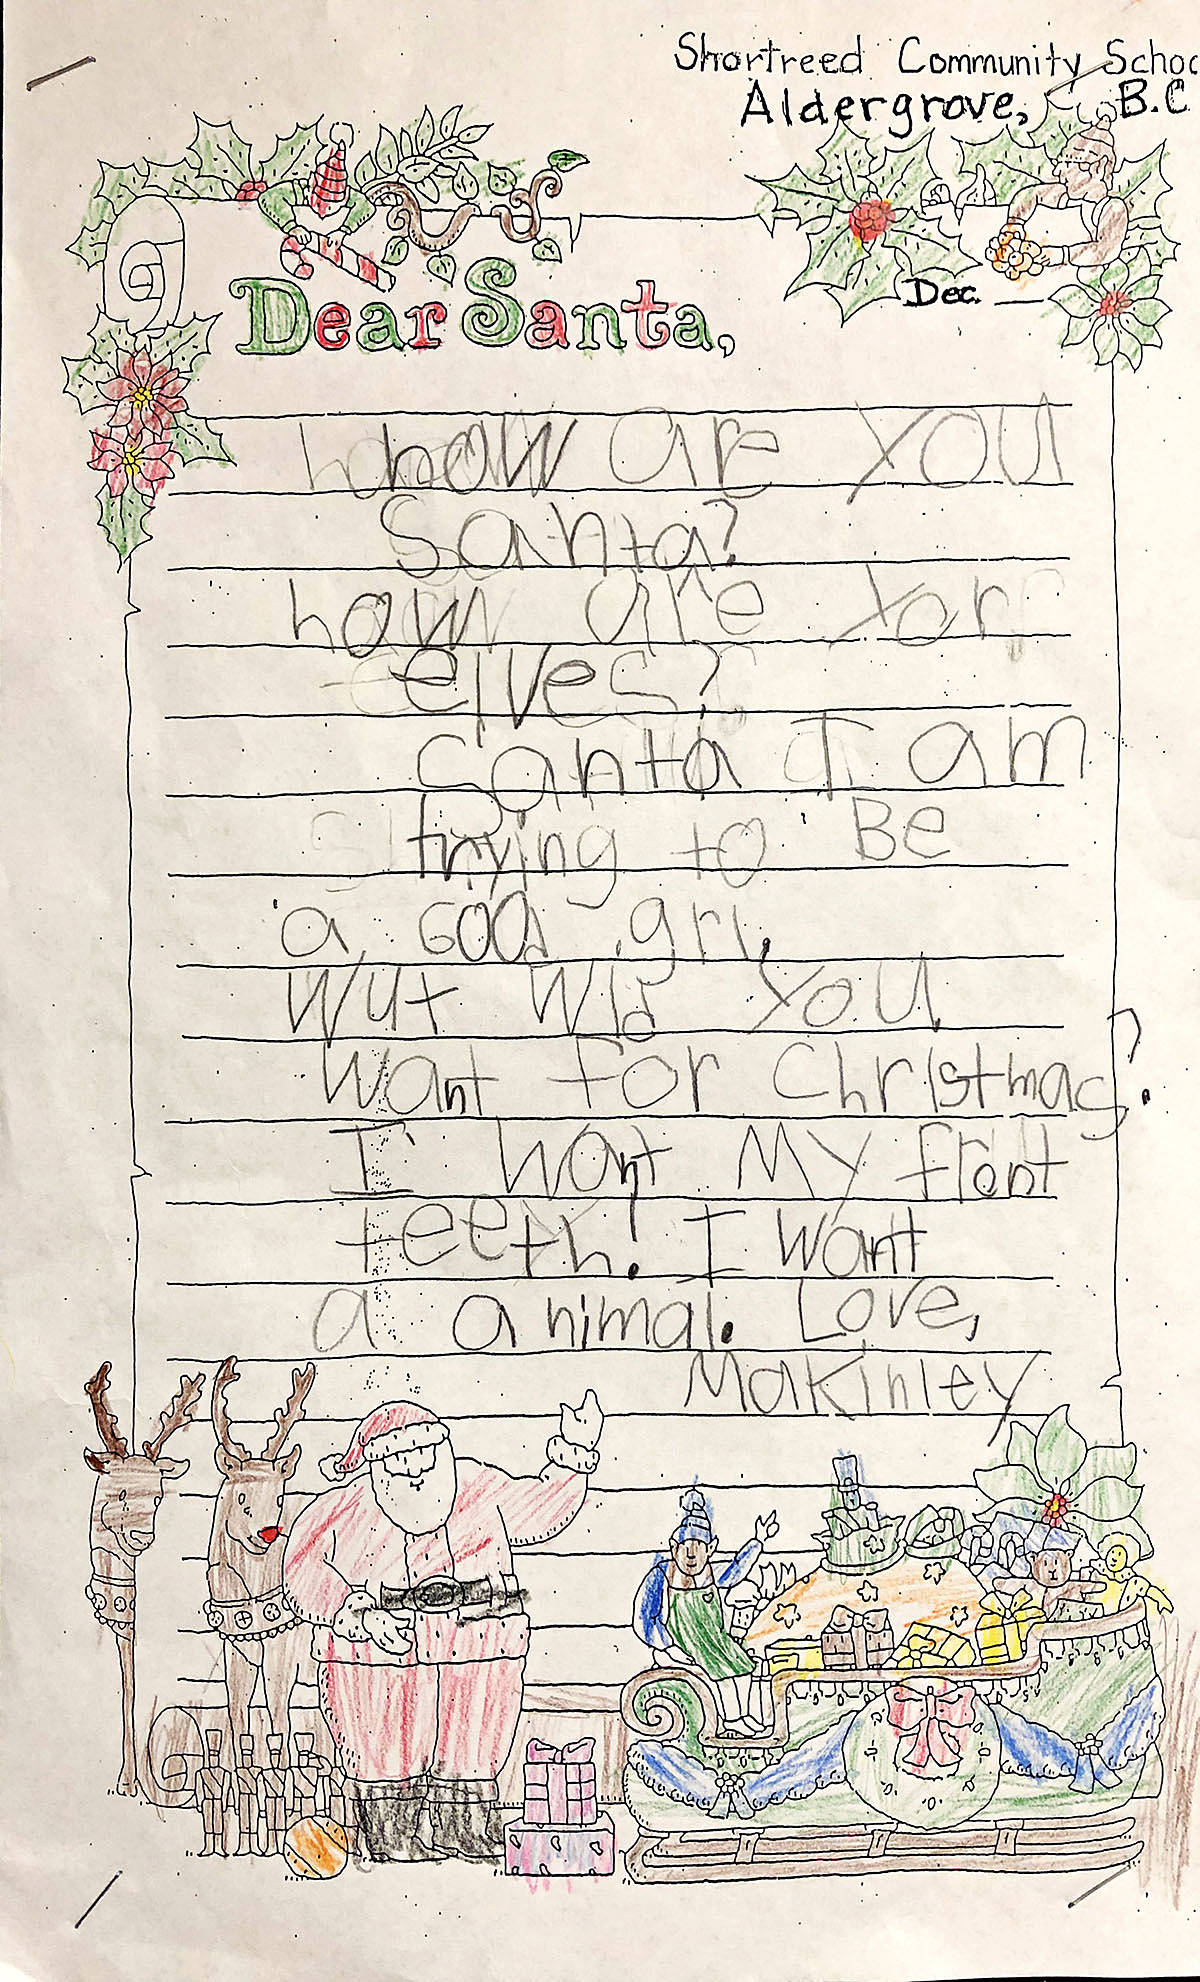 Shortreed Community Schoo
Aldergrove, B.C
Dec.
Dear Santa,
how are you
Santa?
how are yor
elves?
Santa I am
trying to Be
a God grl.
Wut Wld you
Want for Christmas?
I Want My front
teeth! I Want
a animal. Love,
Makinley